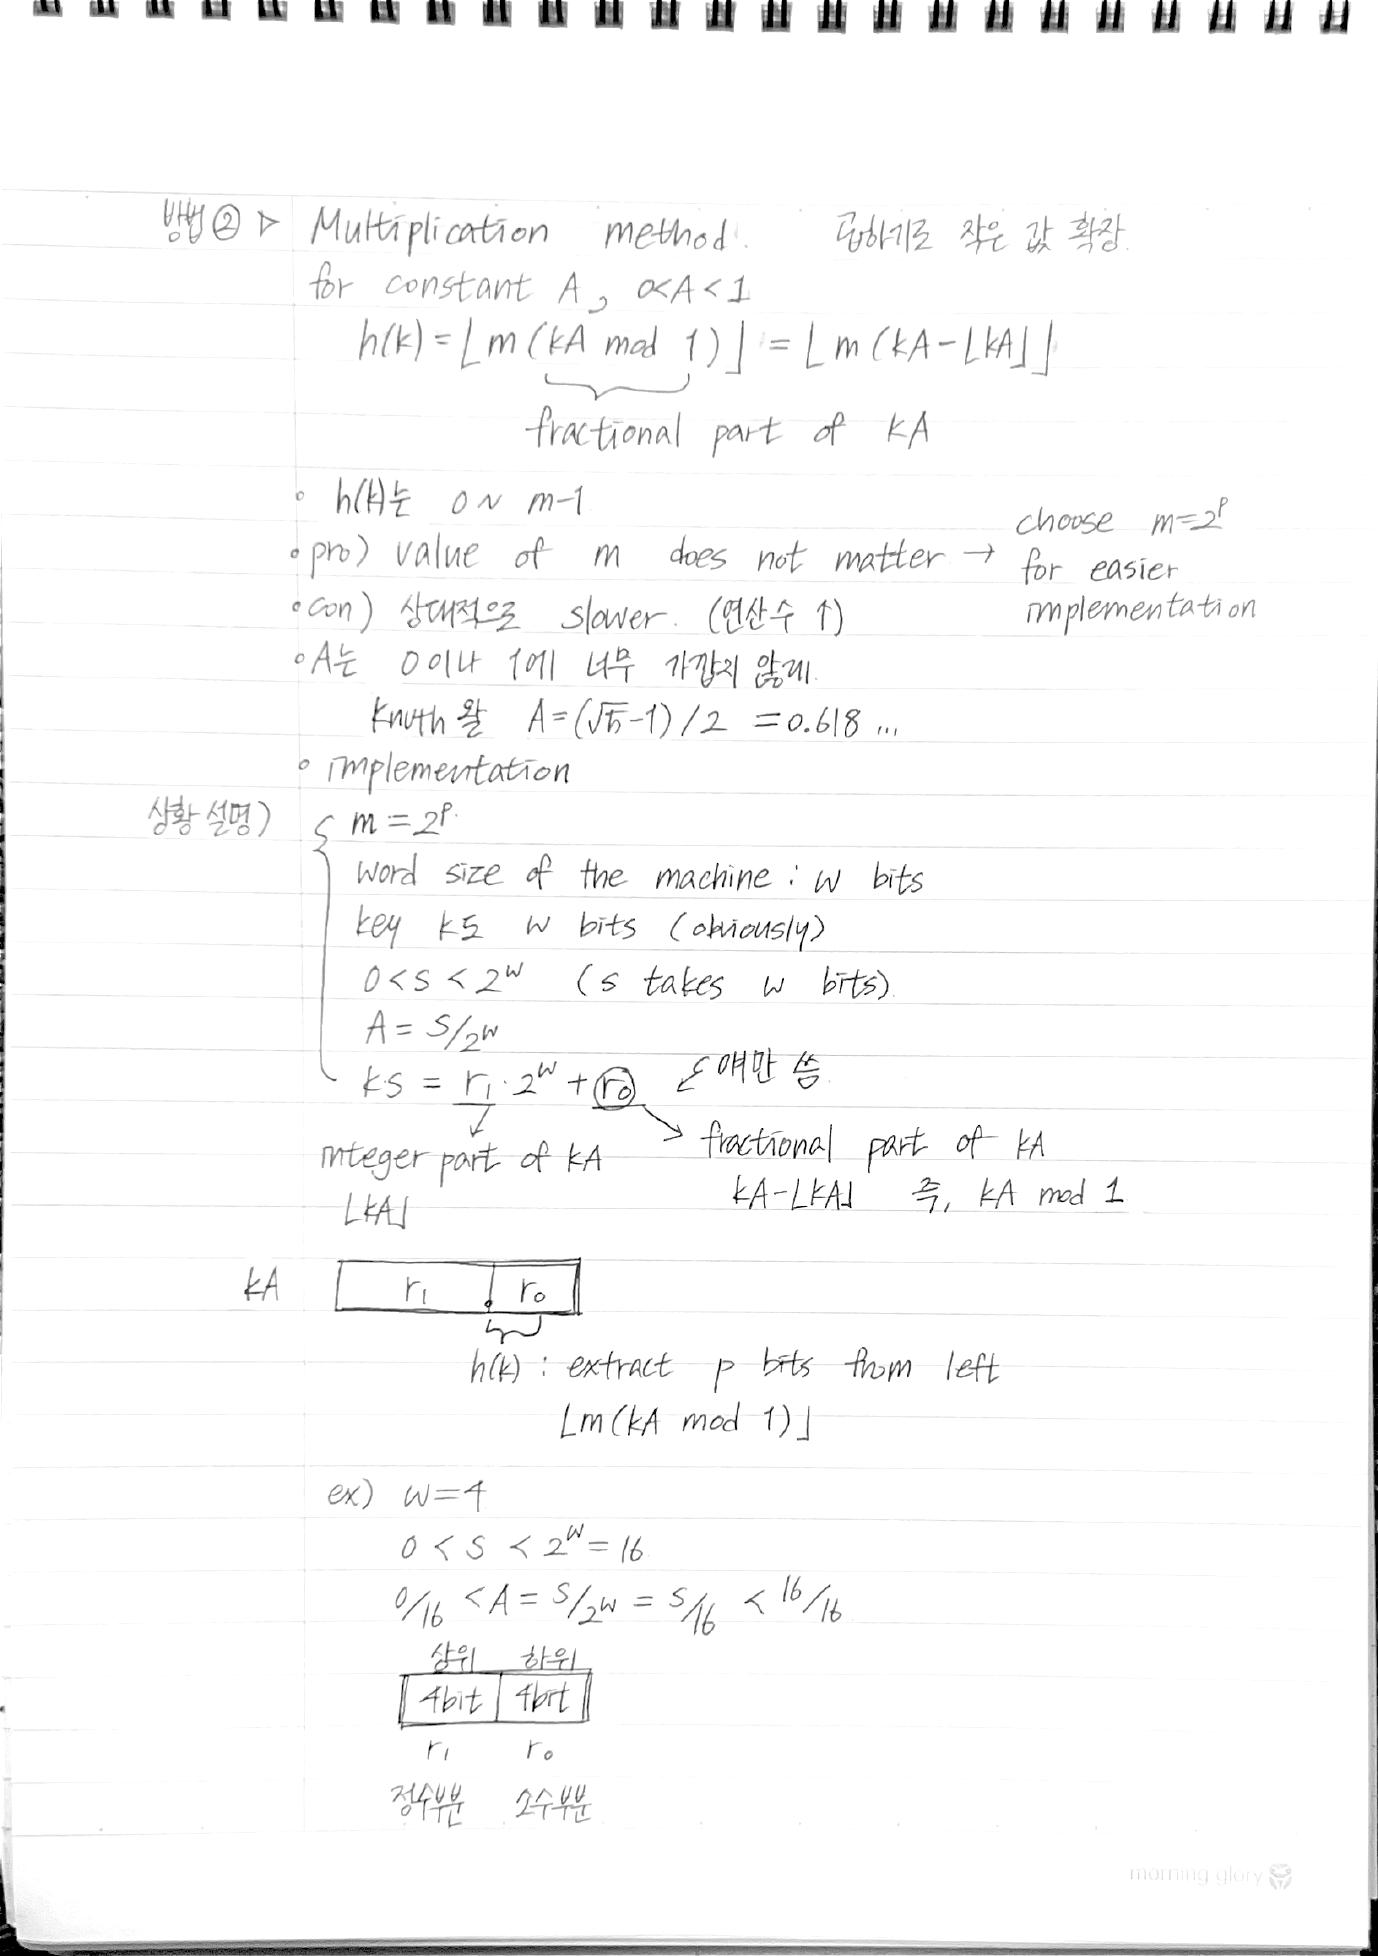 방법② ▷ Multiplication method. 곱하기로 작은 값 확장.
for constant A, 0<A<1
h(k) = ⌊m(kA mod 1)⌋ = ⌊m(kA-⌊kA⌋⌋
fractional part of kA
• h(k)는 0 ~ m-1
• pro) value of m does not matter → choose m=2^p
for easier
implementation
• con) 상대적으로 slower. (연산수 ↑)
• A는 0이나 1에 너무 가깝지 않게.
Knuth 왈 A=(√5-1)/2 = 0.618 ...
• implementation
상황 설명) { m = 2^p.
word size of the machine : w bits
key k도 w bits (obviously)
0 < s < 2^w (s takes w bits)
A = s/2^w
ks = r₁·2^w + r₀ { 얘만 씀
integer part of kA
⌊kA⌋
fractional part of kA
kA-⌊kA⌋ 즉, kA mod 1
kA r₁ . r₀
h(k) : extract p bits from left
⌊m(kA mod 1)⌋
ex) w=4
0 < s < 2^w = 16
0/16 < A = s/2^w = s/16 < 16/16
상위 하위
4bit 4bit
r₁ r₀
정수부분 소수부분
morning glory